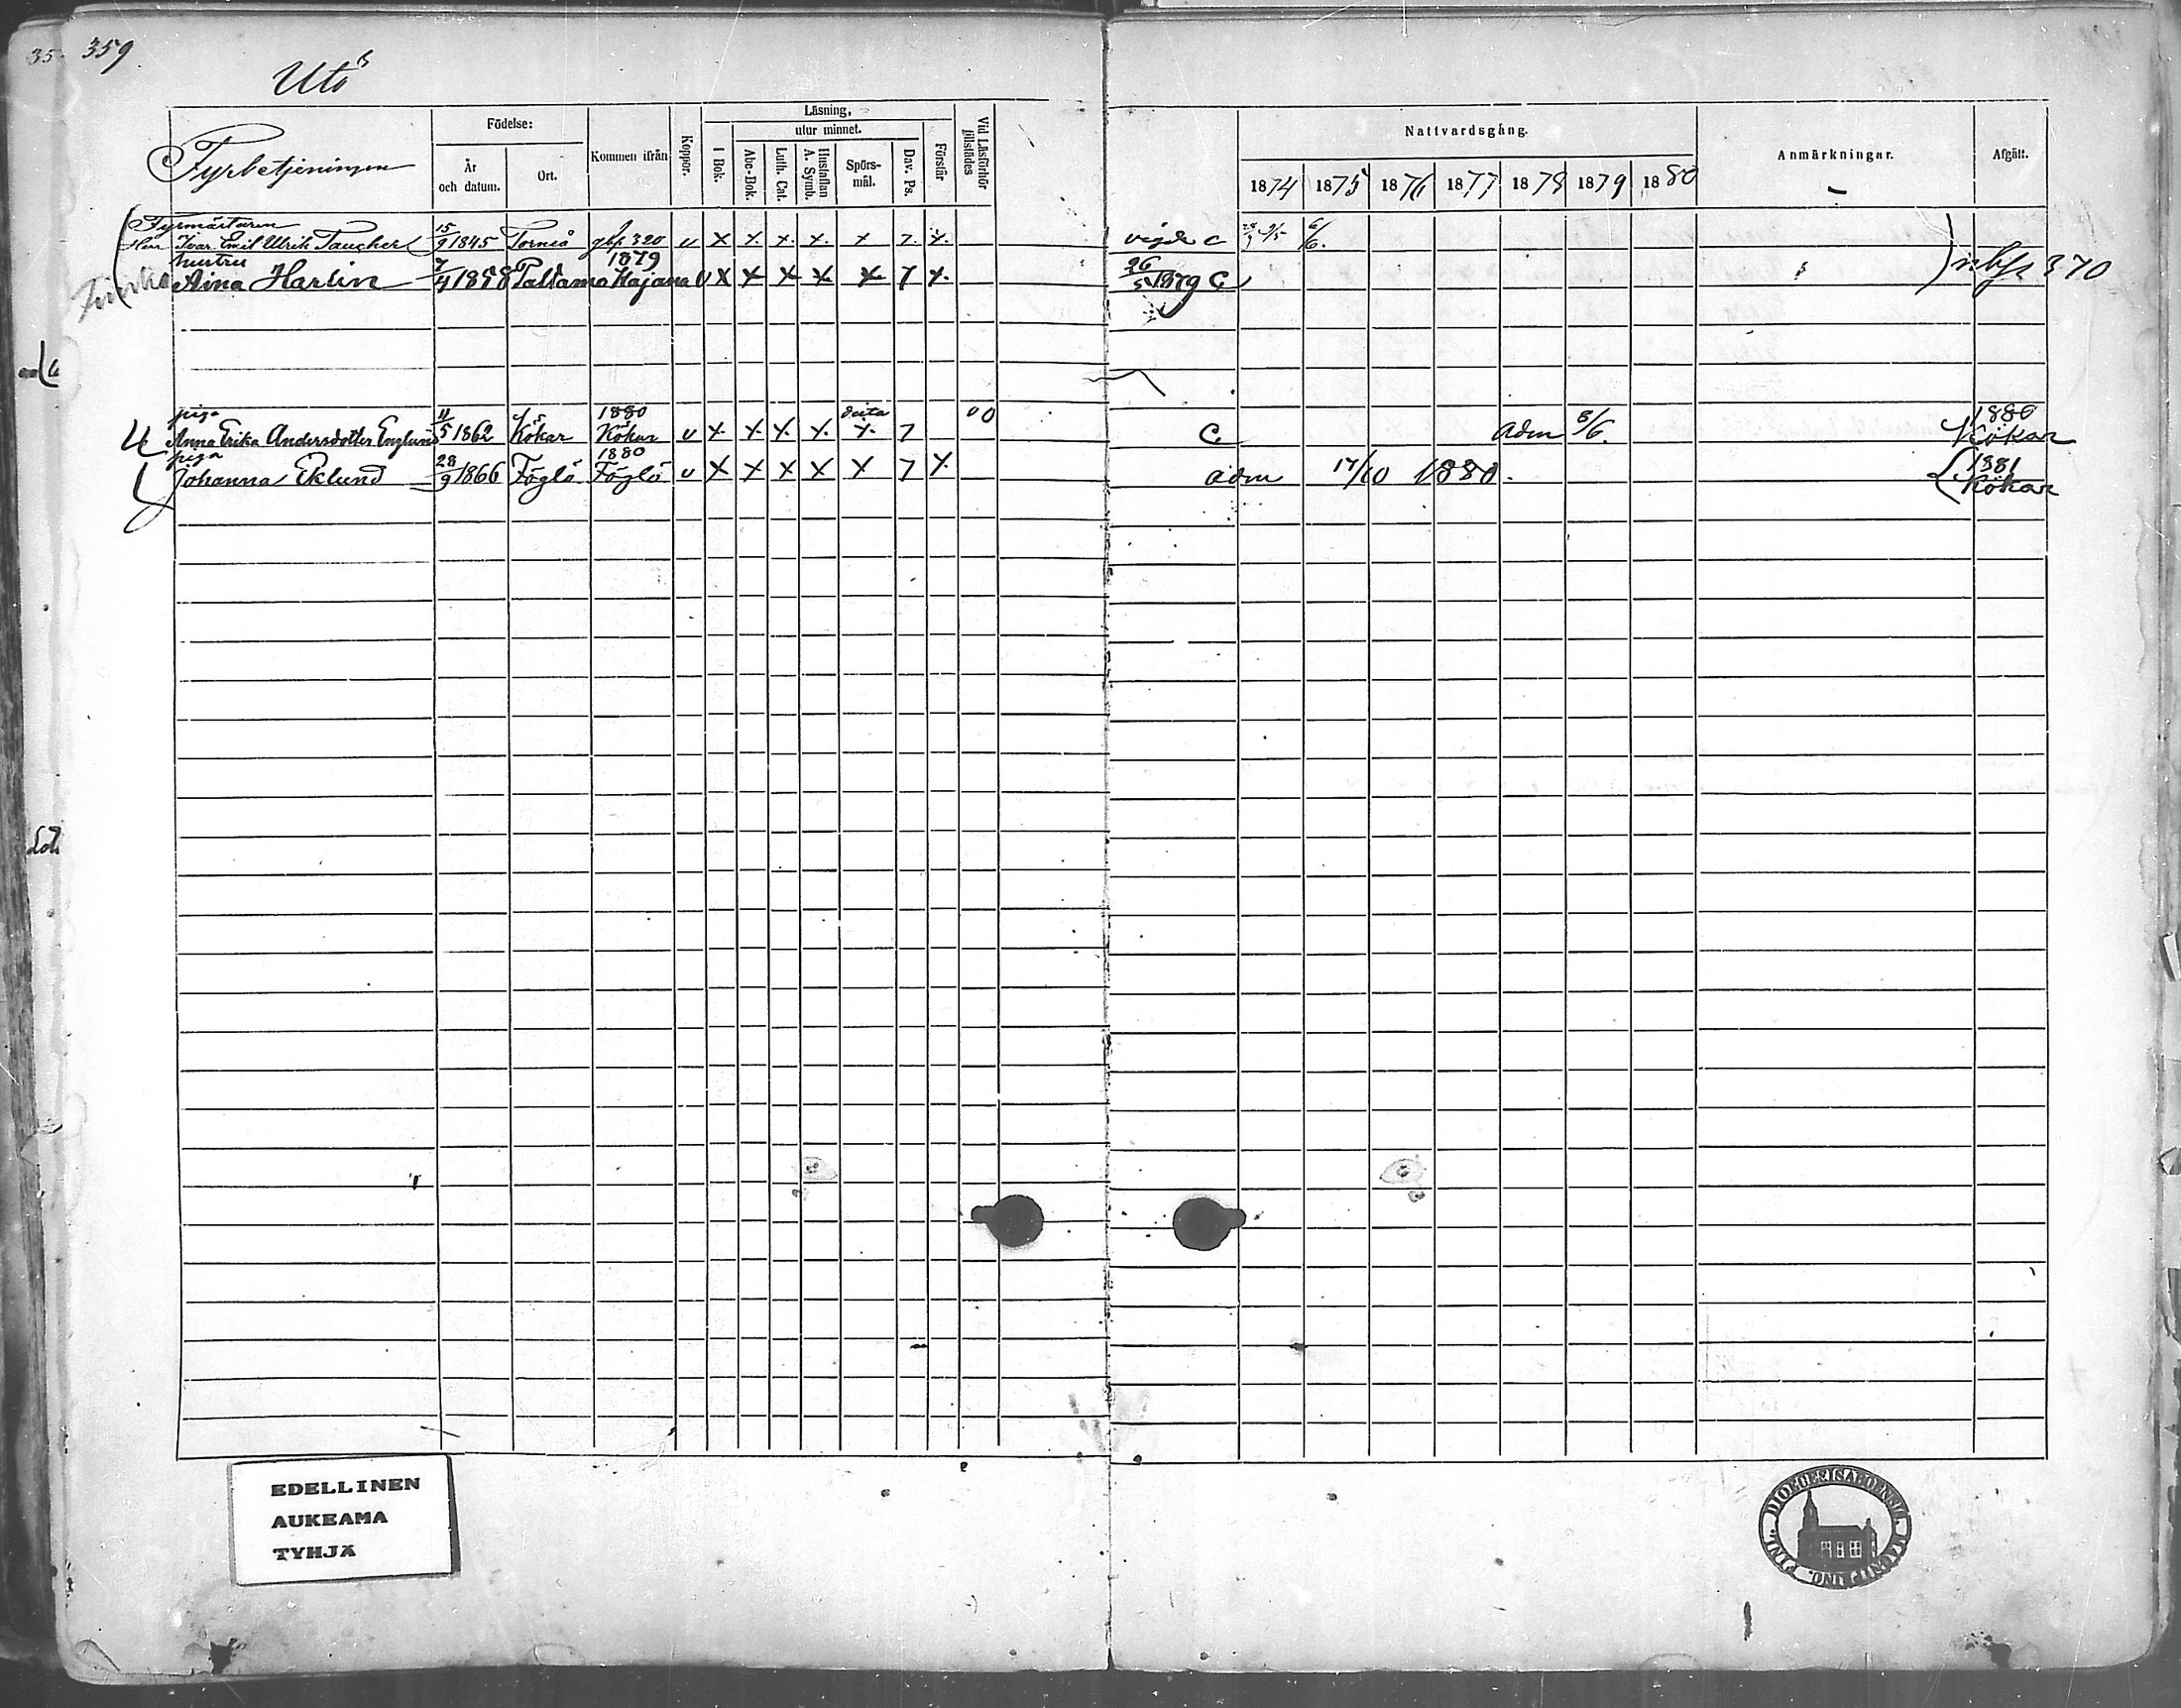 359
Utö
Fyrbetjeningen
Födelse:
År och datum.
Ort.
Kommen ifrån
Koppor.
Läsning,
I Bok.
utur minnet.
Abc-Bok.
Luth. Cat.
Hustaflan A. Symb.
Spörs-mål.
Dav. Ps.
Förstår
Vid Läsförhör tillstädes
Nattvardsgång.
1874 1875 1876 1877 1878 1879 1880
Anmärkningar.
Afgått.
Fyrmästaren
Herr Ivar Emil Ulrik Taucher 15/9 1845 Torneå gbp 320 v x x x x x 7 x vigde C 9/5 6/6.
hustru 1879
Aina Harlin 7/4 1858 Paltamo Kajana v x x x x x 7 x 26/5 1879 C nbp 370
piga 11/5 1862 Kökar 1880 Kökar v x x x x x 7 00 C. adm 8/6. 1880 Kökar
Anna Erika Andersdotter Englund
piga
Johanna Eklund 28/9 1866 Föglö 1880 Föglö v x x x x x 7 x adm 17/10 1880. 1881 Kökar
EDELLINEN
AUKEAMA
TYHJÄ